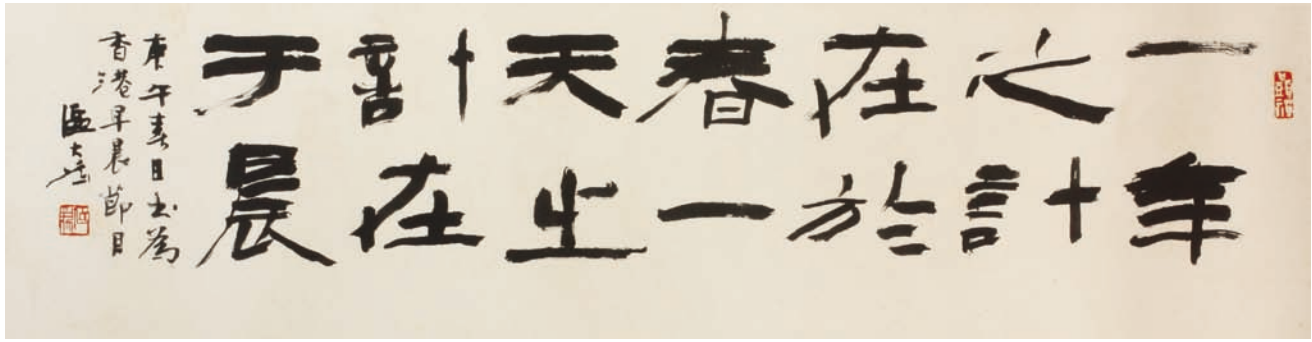 一年
之計
在於
春一
天之
計在
于晨
庚午春日書為
香港早晨節目
區大為